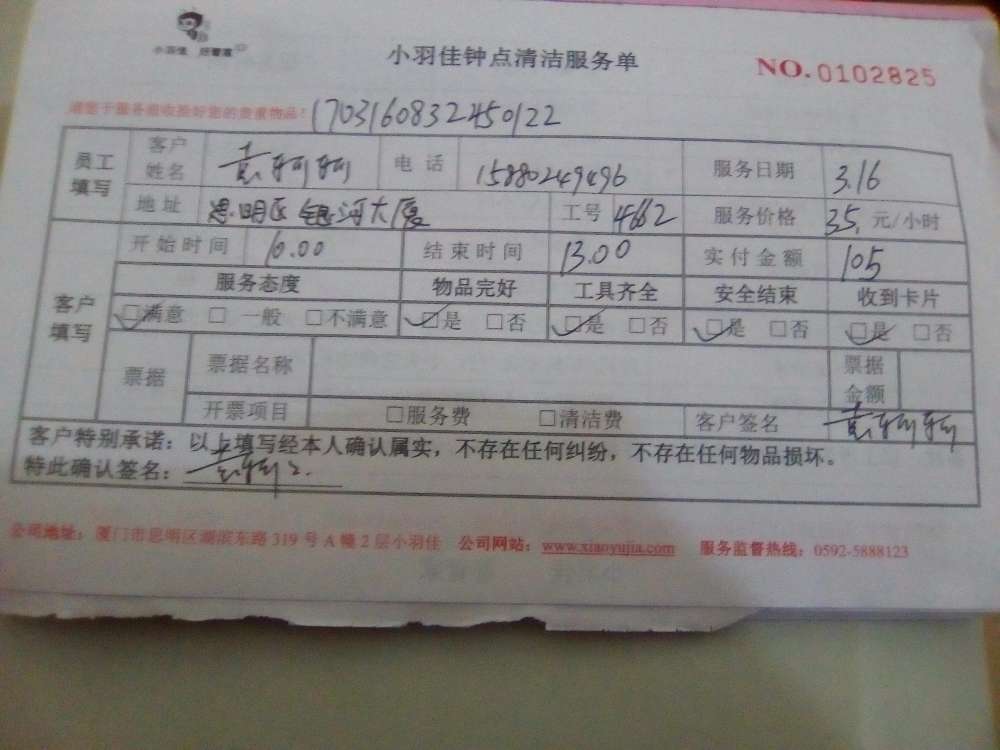 小羽佳 好管家
小羽佳钟点清洁服务单
NO.0102825
请您于服务前收拾好您的贵重物品! 1703160832450122
员工填写 客户姓名 电话 15880249496 服务日期 3.16
地址 思明区银河大厦 工号 4662 服务价格 35 元/小时
客户填写 开始时间 10.00 结束时间 13.00 实付金额 105
服务态度 物品完好 工具齐全 安全结束 收到卡片
☑满意 □一般 □不满意 ☑是 □否 ☑是 □否 ☑是 □否 ☑是 □否
票据 票据名称 票据金额
开票项目 □服务费 □清洁费 客户签名
客户特别承诺：以上填写经本人确认属实，不存在任何纠纷，不存在任何物品损坏。
特此确认签名：
公司地址：厦门市思明区湖滨东路319号A幢2层小羽佳 公司网站：www.xiaoyujia.com 服务监督热线：0592-5888123